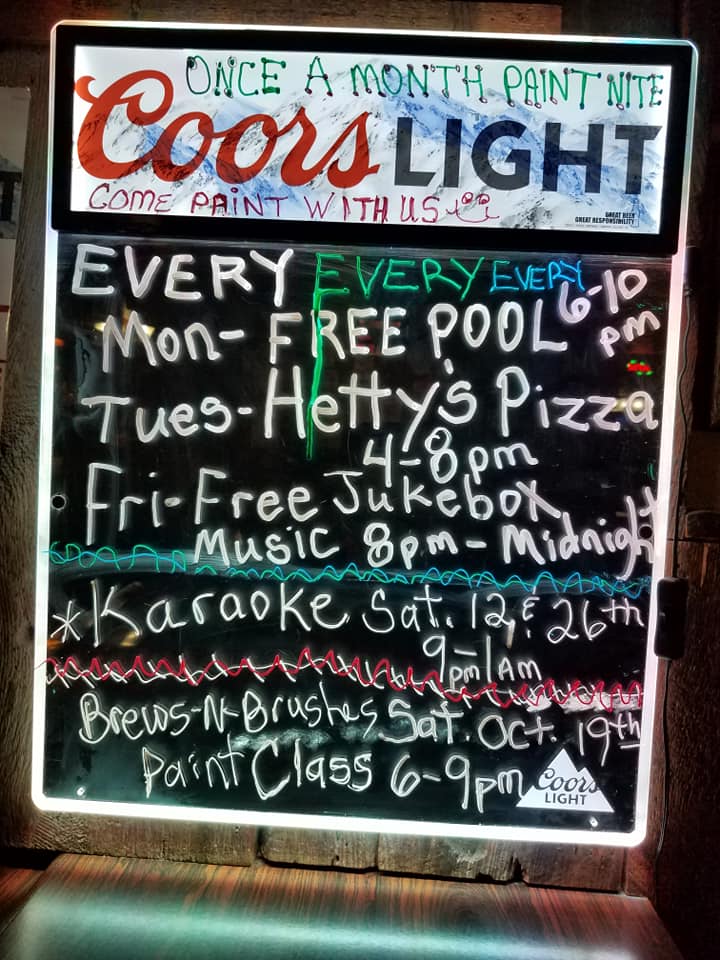 ONCE A MONTH PAINT NITE
Coors LIGHT
COME PAINT WITH US
GREAT BEER
GREAT RESPONSIBILITY
EVERY EVERY EVERY
6-10
pm
Mon- FREE POOL
Tues- Hetty's Pizza
4-8pm
Fri- Free Jukebox
Music 8pm - Midnight
*Karaoke Sat. 12 & 26th
9pm-1AM
Brews-N-Brushes Sat. Oct. 19th
Paint Class 6-9pm
Coors
LIGHT